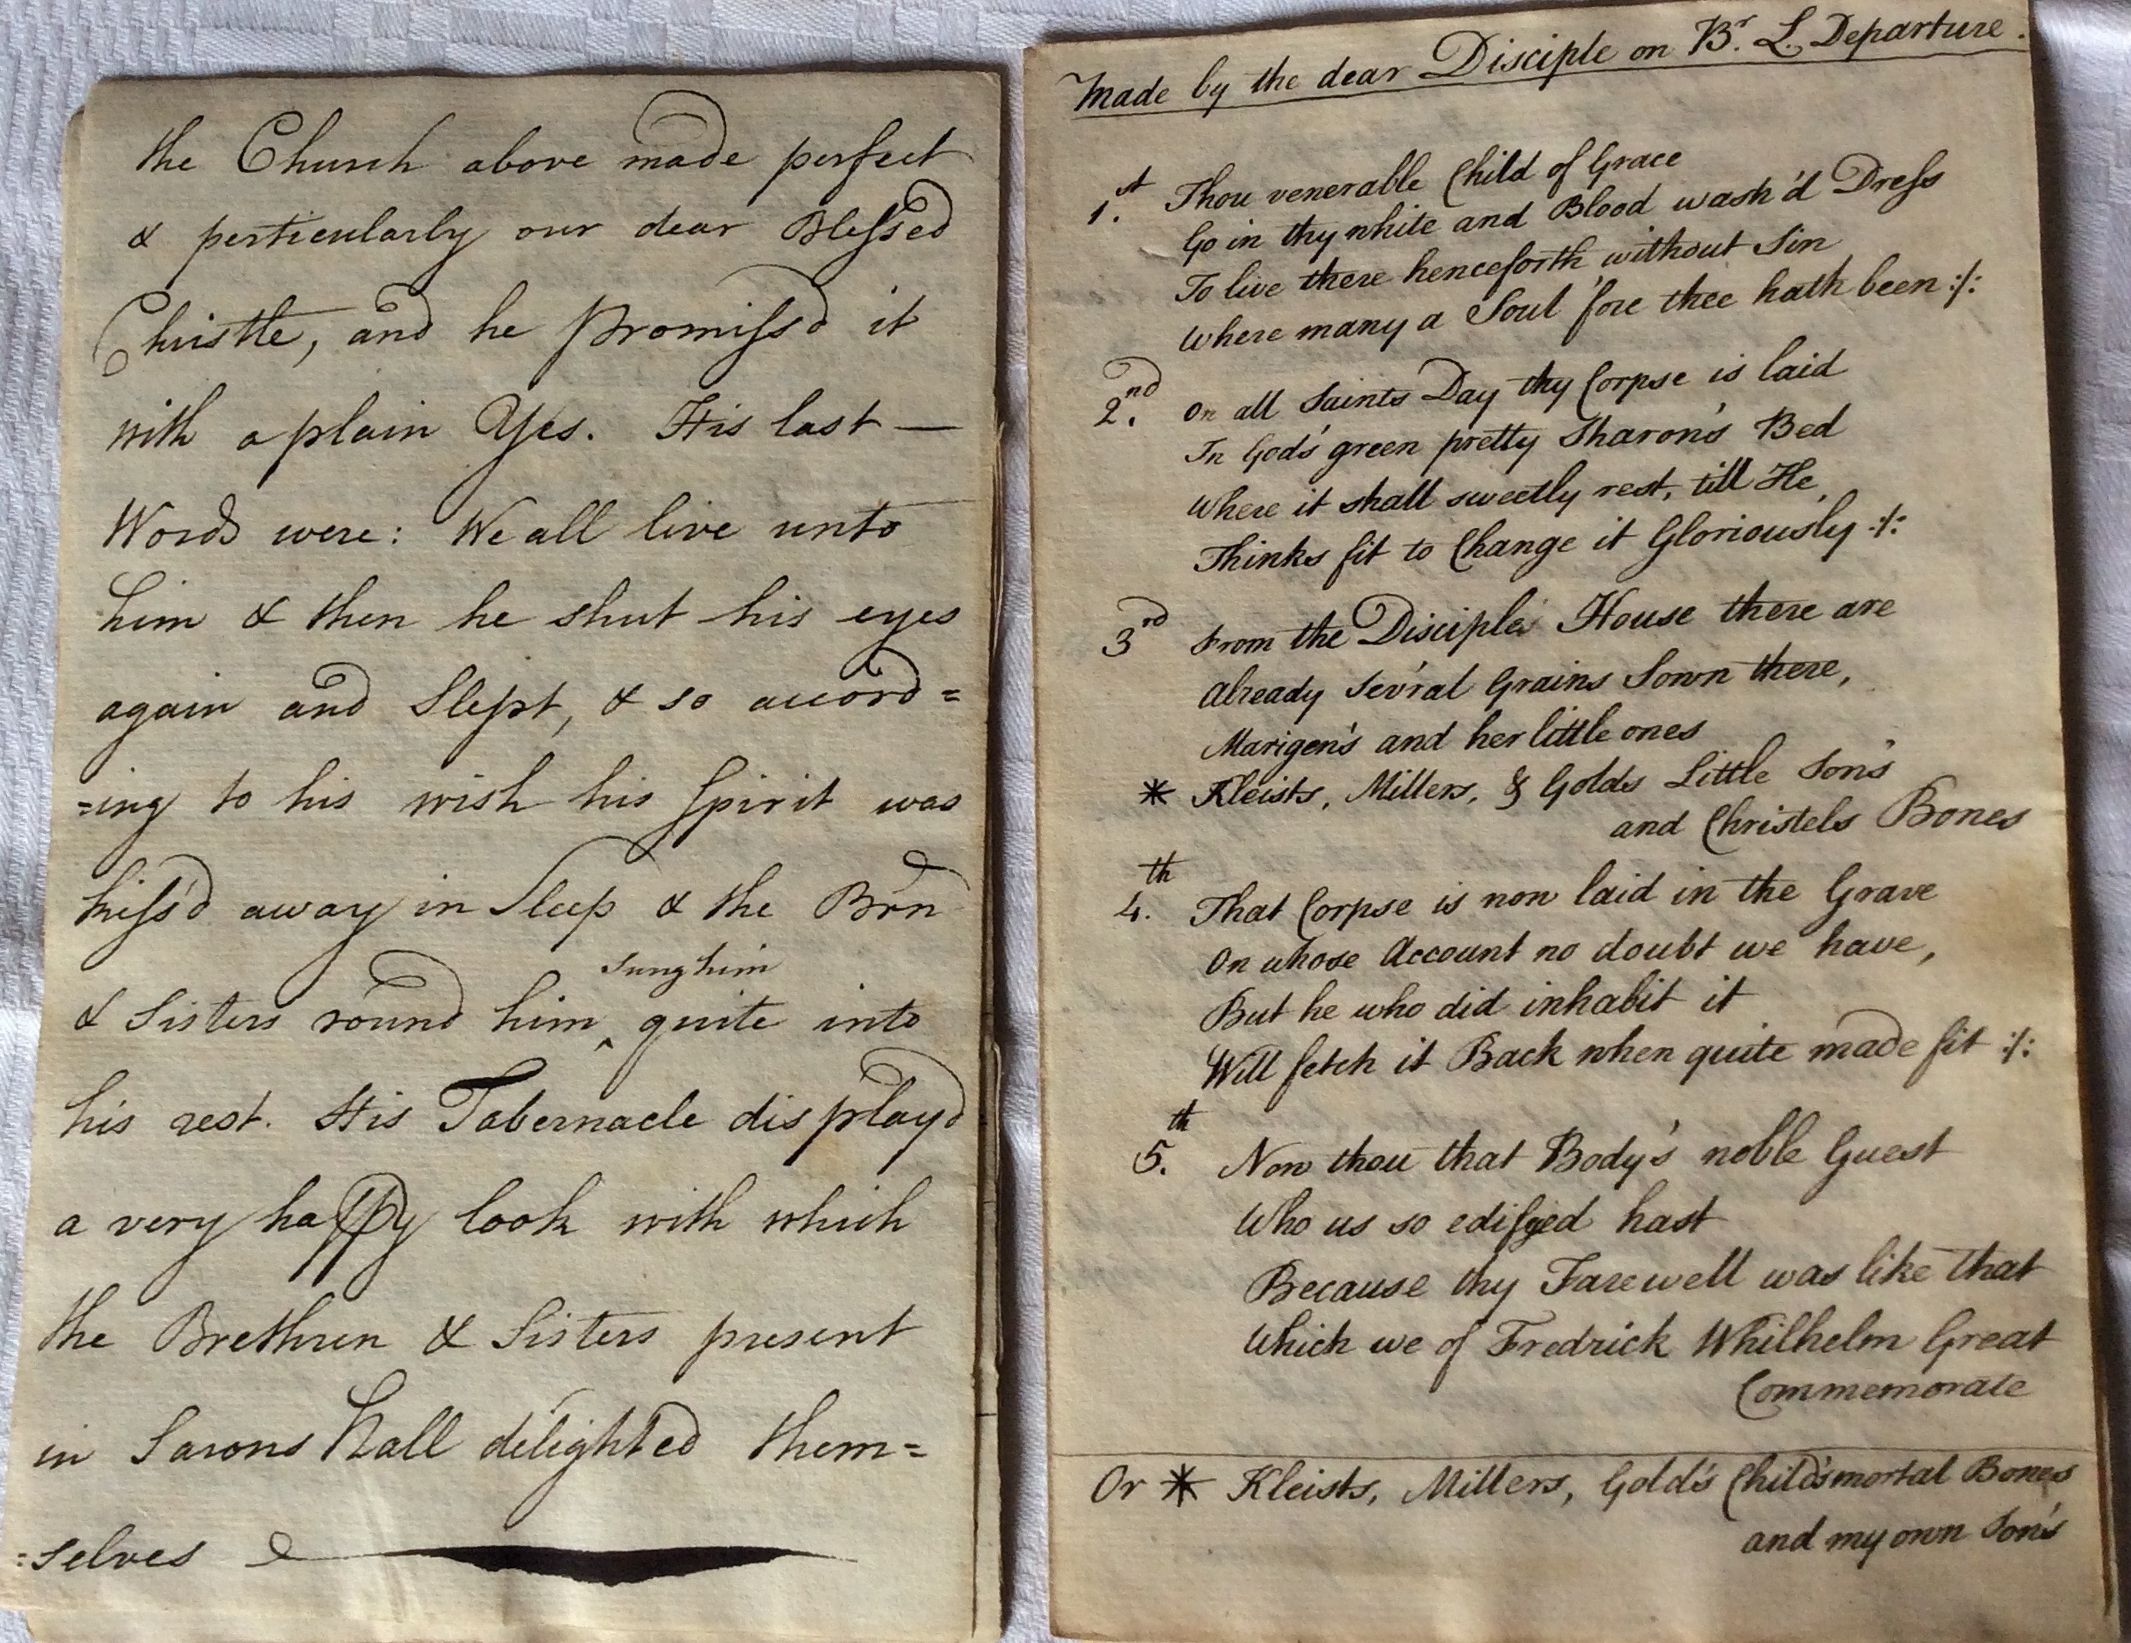 the Church above made perfect
& perticularly our dear Blessed
Christle, and he Promiss'd it
with a plain Yes. His last —
Words were: We all live unto
him & then he shut his eyes
again and Slept, & so accord=
=ing to his wish his Spirit was
kiss'd away in Sleep & the Brn
& Sisters round him ^ sung him quite into
his rest. His Tabernacle display'd
a very happy look with which
the Brethren & Sisters present
in Sarons Hall delighted them=
=selves
Made by the dear Disciple on Br. L. Departure.
1.st Thou venerable Child of Grace
Go in thy white and Blood wash'd Dress
To live there henceforth without Sin
Where many a Soul 'fore thee hath been :/:
2.nd On all Saints Day thy Corpse is laid
In God's green pretty Sharon's Bed
Where it shall sweetly rest, till He,
Thinks fit to Change it Gloriously :/:
3rd From the Disciples House there are
Already Sev'ral Grains Sown there,
Marigen's and her little ones
* Kleists, Millers, & Golds Little Son's
and Christels Bones
4.th That Corpse is now laid in the Grave
On whose Account no doubt we have,
But he who did inhabit it
Will fetch it Back when quite made fit :/:
5.th Now thou that Body's noble Guest
Who us so edifyed hast
Because thy Farewell was like that
Which we of Fredrick Whilhelm Great
Commemorate
Or * Kleists, Millers, Gold's Child's mortal Bones
and my own Son's